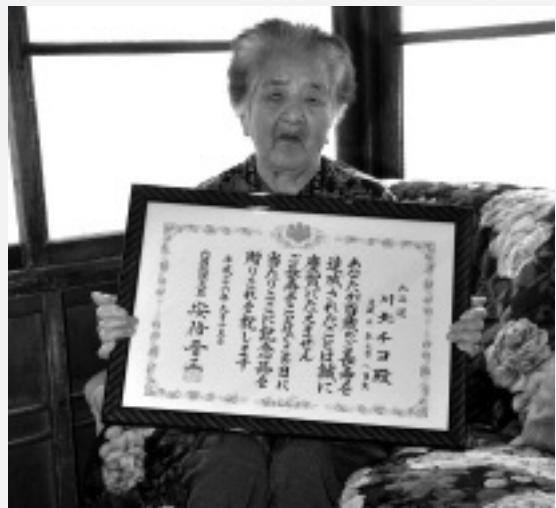 川北千ヨ殿
あなたが百歳のご長寿を
達成されたことは誠に
慶賀にたえません
ご長寿をことほぐ本日に
当たりここに記念品を
贈りこれを祝します
内閣総理大臣 安倍晋三